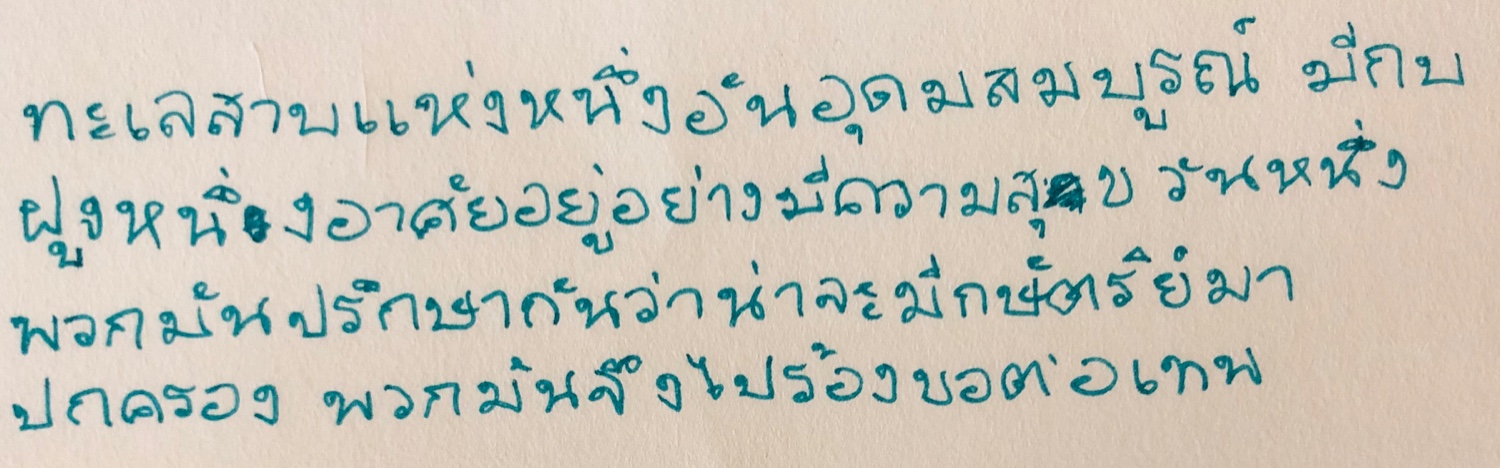 ทะเลสาบแห่งหนึ่งอันอุดมสมบูรณ์ มีกบ
ฝูงหนึ่งอาศัยอยู่อย่างมีความสุข วันหนึ่ง
พวกมันปรึกษากันว่าน่าจะมีกษัตริย์มา
ปกครอง พวกมันจึงไปร้องขอต่อเทพ